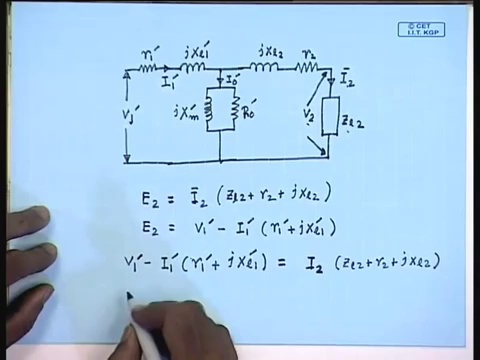 © CET
I.I.T. KGP
r₁′ jXℓ₁′ jXℓ₂ r₂
I₁′ I₀′ Ī₂
V₁′ jXₘ′ R₀′ V₂ Zℓ₂
E₂ = Ī₂ (Zℓ₂ + r₂ + jXℓ₂)
E₂ = V₁′ − I₁′ (r₁′ + jXℓ₁′)
V₁′ − I₁′ (r₁′ + jXℓ₁′) = I₂ (Zℓ₂ + r₂ + jXℓ₂)